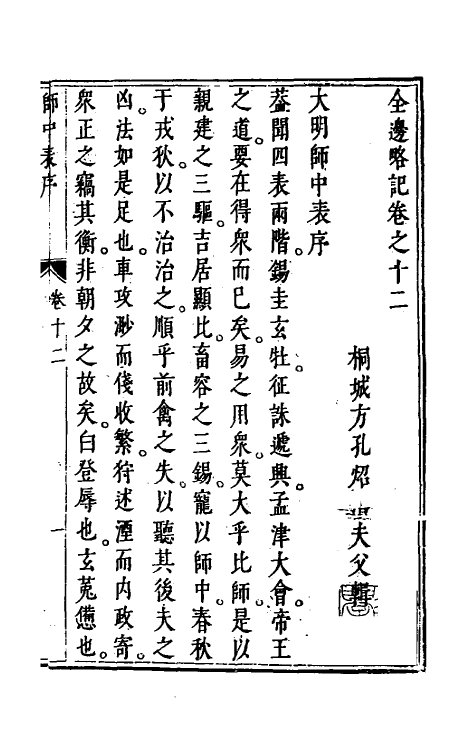 全邊略記卷之十二
桐城方孔炤 夫父
大明師中表序
蓋聞四表兩階錫圭玄牡征誅遞興孟津大會帝王
之道要在得衆而已矣易之用衆莫大乎比師是以
親建之三驅吉居顯比畜容之三錫寵以師中春秋
于戎狄以不治治之順乎前禽之失以聽其後夫之
凶法如是足也車攻渺而俴收繁狩述湮而內政寄
衆正之竊其衡非朝夕之故矣白登辱也玄菟憊也
師中表序
卷十二
一